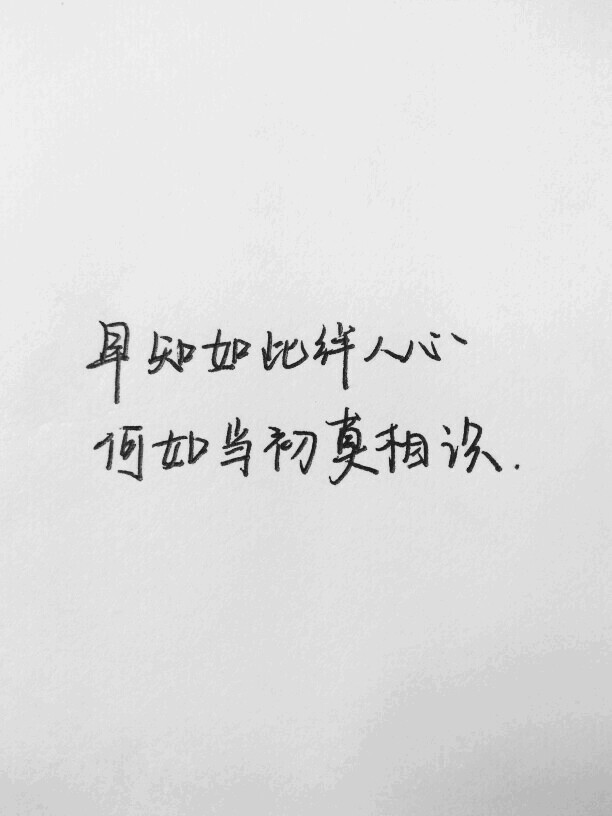 早知如此绊人心
何如当初真相识.